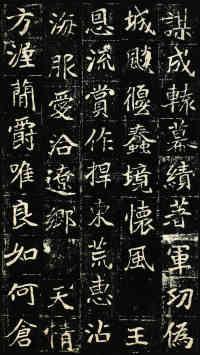 謀成轅幕績著軍功偽
城飈偃蠢境懷風 王
恩流賞作捍東荒惠沾
海服愛洽遼鄉 天情
方渥簡爵唯良如何倉